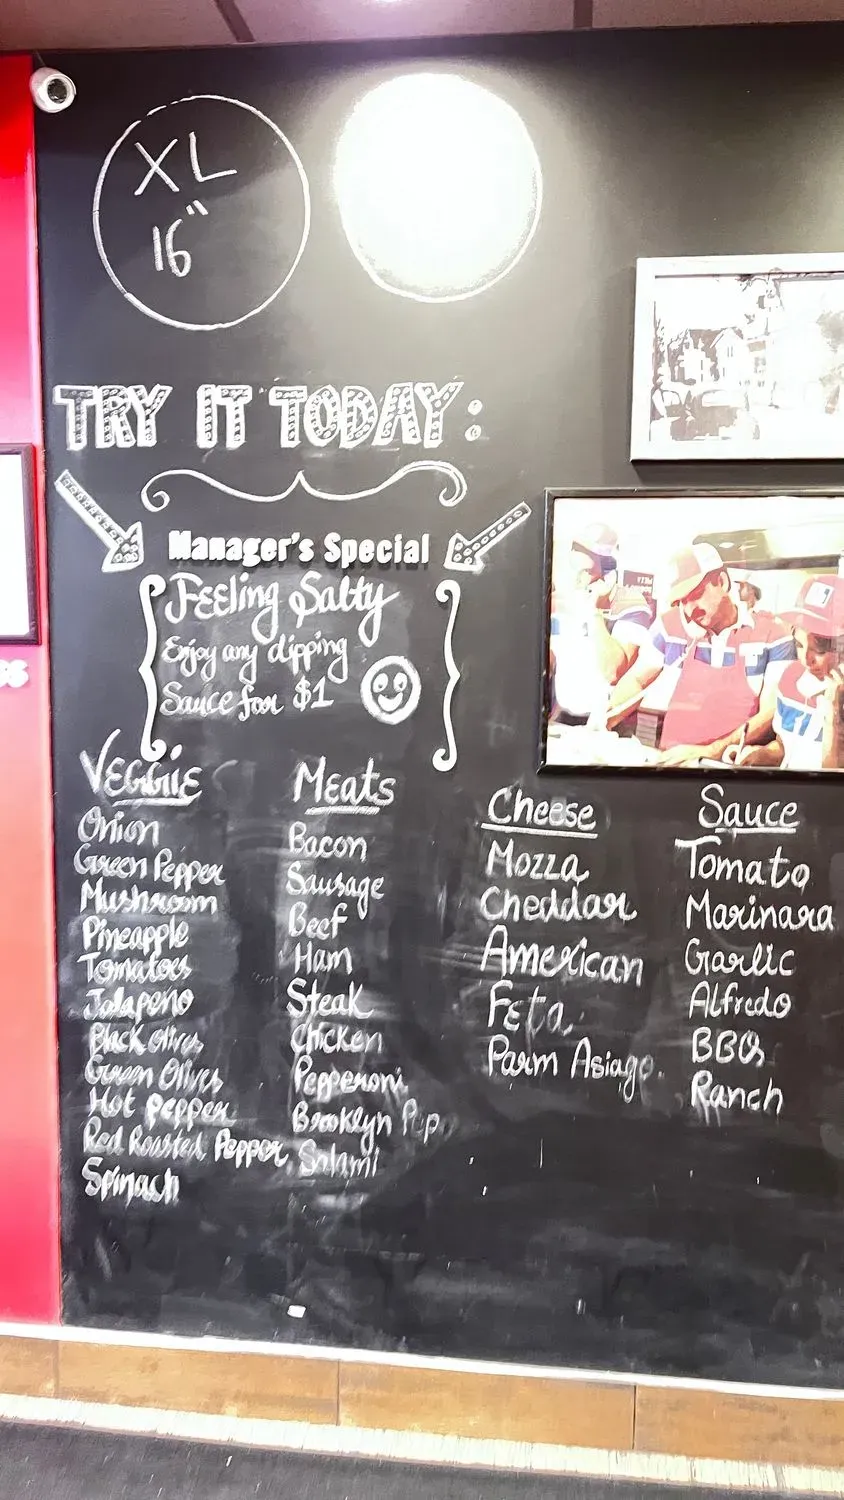 XL
16"
TRY IT TODAY:
Manager's Special
Feeling Salty
Enjoy any dipping
Sauce for $1
Veggie
Onion
Green Pepper
Mushroom
Pineapple
Tomatoes
Jalapeno
Black Olives
Green Olives
Hot Pepper
Red Roasted Pepper
Spinach
Meats
Bacon
Sausage
Beef
Ham
Steak
Chicken
Pepperoni
Brooklyn Pep
Salami
Cheese
Mozza
Cheddar
American
Feta
Parm Asiago
Sauce
Tomato
Marinara
Garlic
Alfredo
BBQ
Ranch